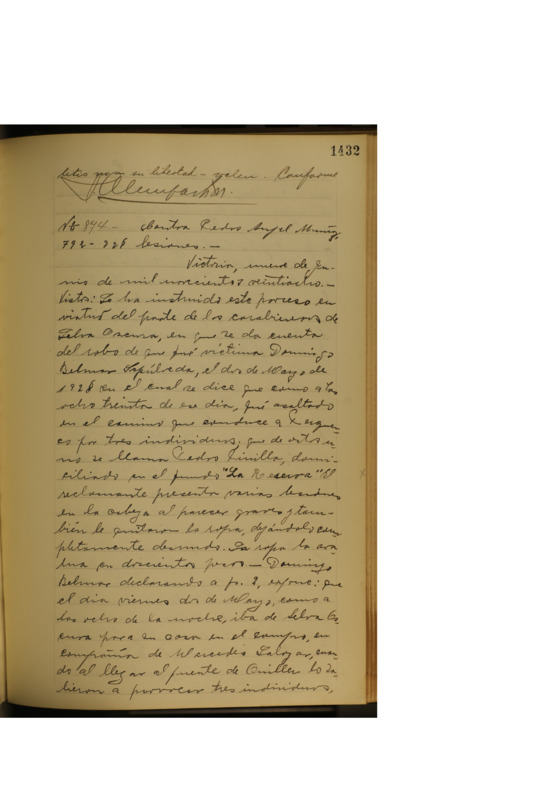 1432
su libertad - Conforme
No 844 - Contra Pedro Angel Muñoz,
792 - 228 lesiones. -
Victoria, nueve de Ju-
nio de mil novecientos veintiocho. -
Vistos: Se ha instruido este proceso en
virtud del parte de los carabineros de
Selva Oscura, en que se da cuenta
del robo de que fué víctima Domingo
Belmar Sepúlveda, el dos de Mayo de
1928 en el cual se dice que como a las
ocho treinta de ese día, fué asaltado
en el camino que conduce a Perquen-
co por tres individuos, que de éstos u-
no se llama Pedro Pinilla, domi-
ciliado en el fundo "La Reserva" El
reclamante presenta varias lesiones
en la cabeza al parecer graves y tam-
bién le quitaron la ropa, dejándolo com
pletamente desnudo. La ropa la ava-
lua en doscientos pesos. - Domingo
Belmar declarando a fs. 2, expone: que
el día viernes dos de Mayo, como a
las ocho de la noche, iba de Selva Os
cura para su casa en el campo, en
compañía de Mercedes Salazar, cuan-
do al llegar al puente de Quillem lo sa-
lieron a provocar tres individuos,